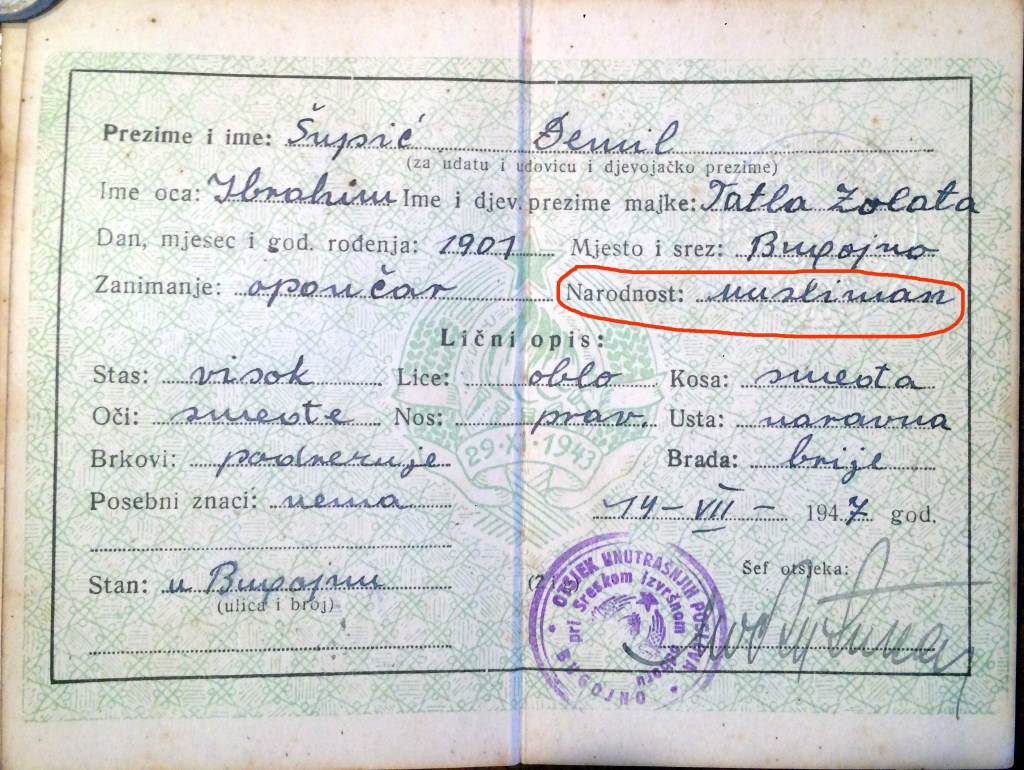 Prezime i ime: Šupić Đemil
(za udatu i udovicu i djevojačko prezime)
Ime oca: Ibrahim Ime i djev. prezime majke: Tatla Zolata
Dan, mjesec i god. rođenja: 1901 Mjesto i srez: Bugojno
Zanimanje: opančar Narodnost: musliman
Lični opis:
Stas: visok Lice: oblo Kosa: smeđa
Oči: smeđe Nos: prav. Usta: naravna
Brkovi: podrezuje Brada: brije
Posebni znaci: nema 14 - VII - 1947 god.
29·XI·1943
Stan: u Bugojnu
(ulica i broj)
Šef otsjeka:
OTSJEK UNUTRAŠNJIH POSLOVA
pri Sreskom izvršnom odboru
BUGOJNO